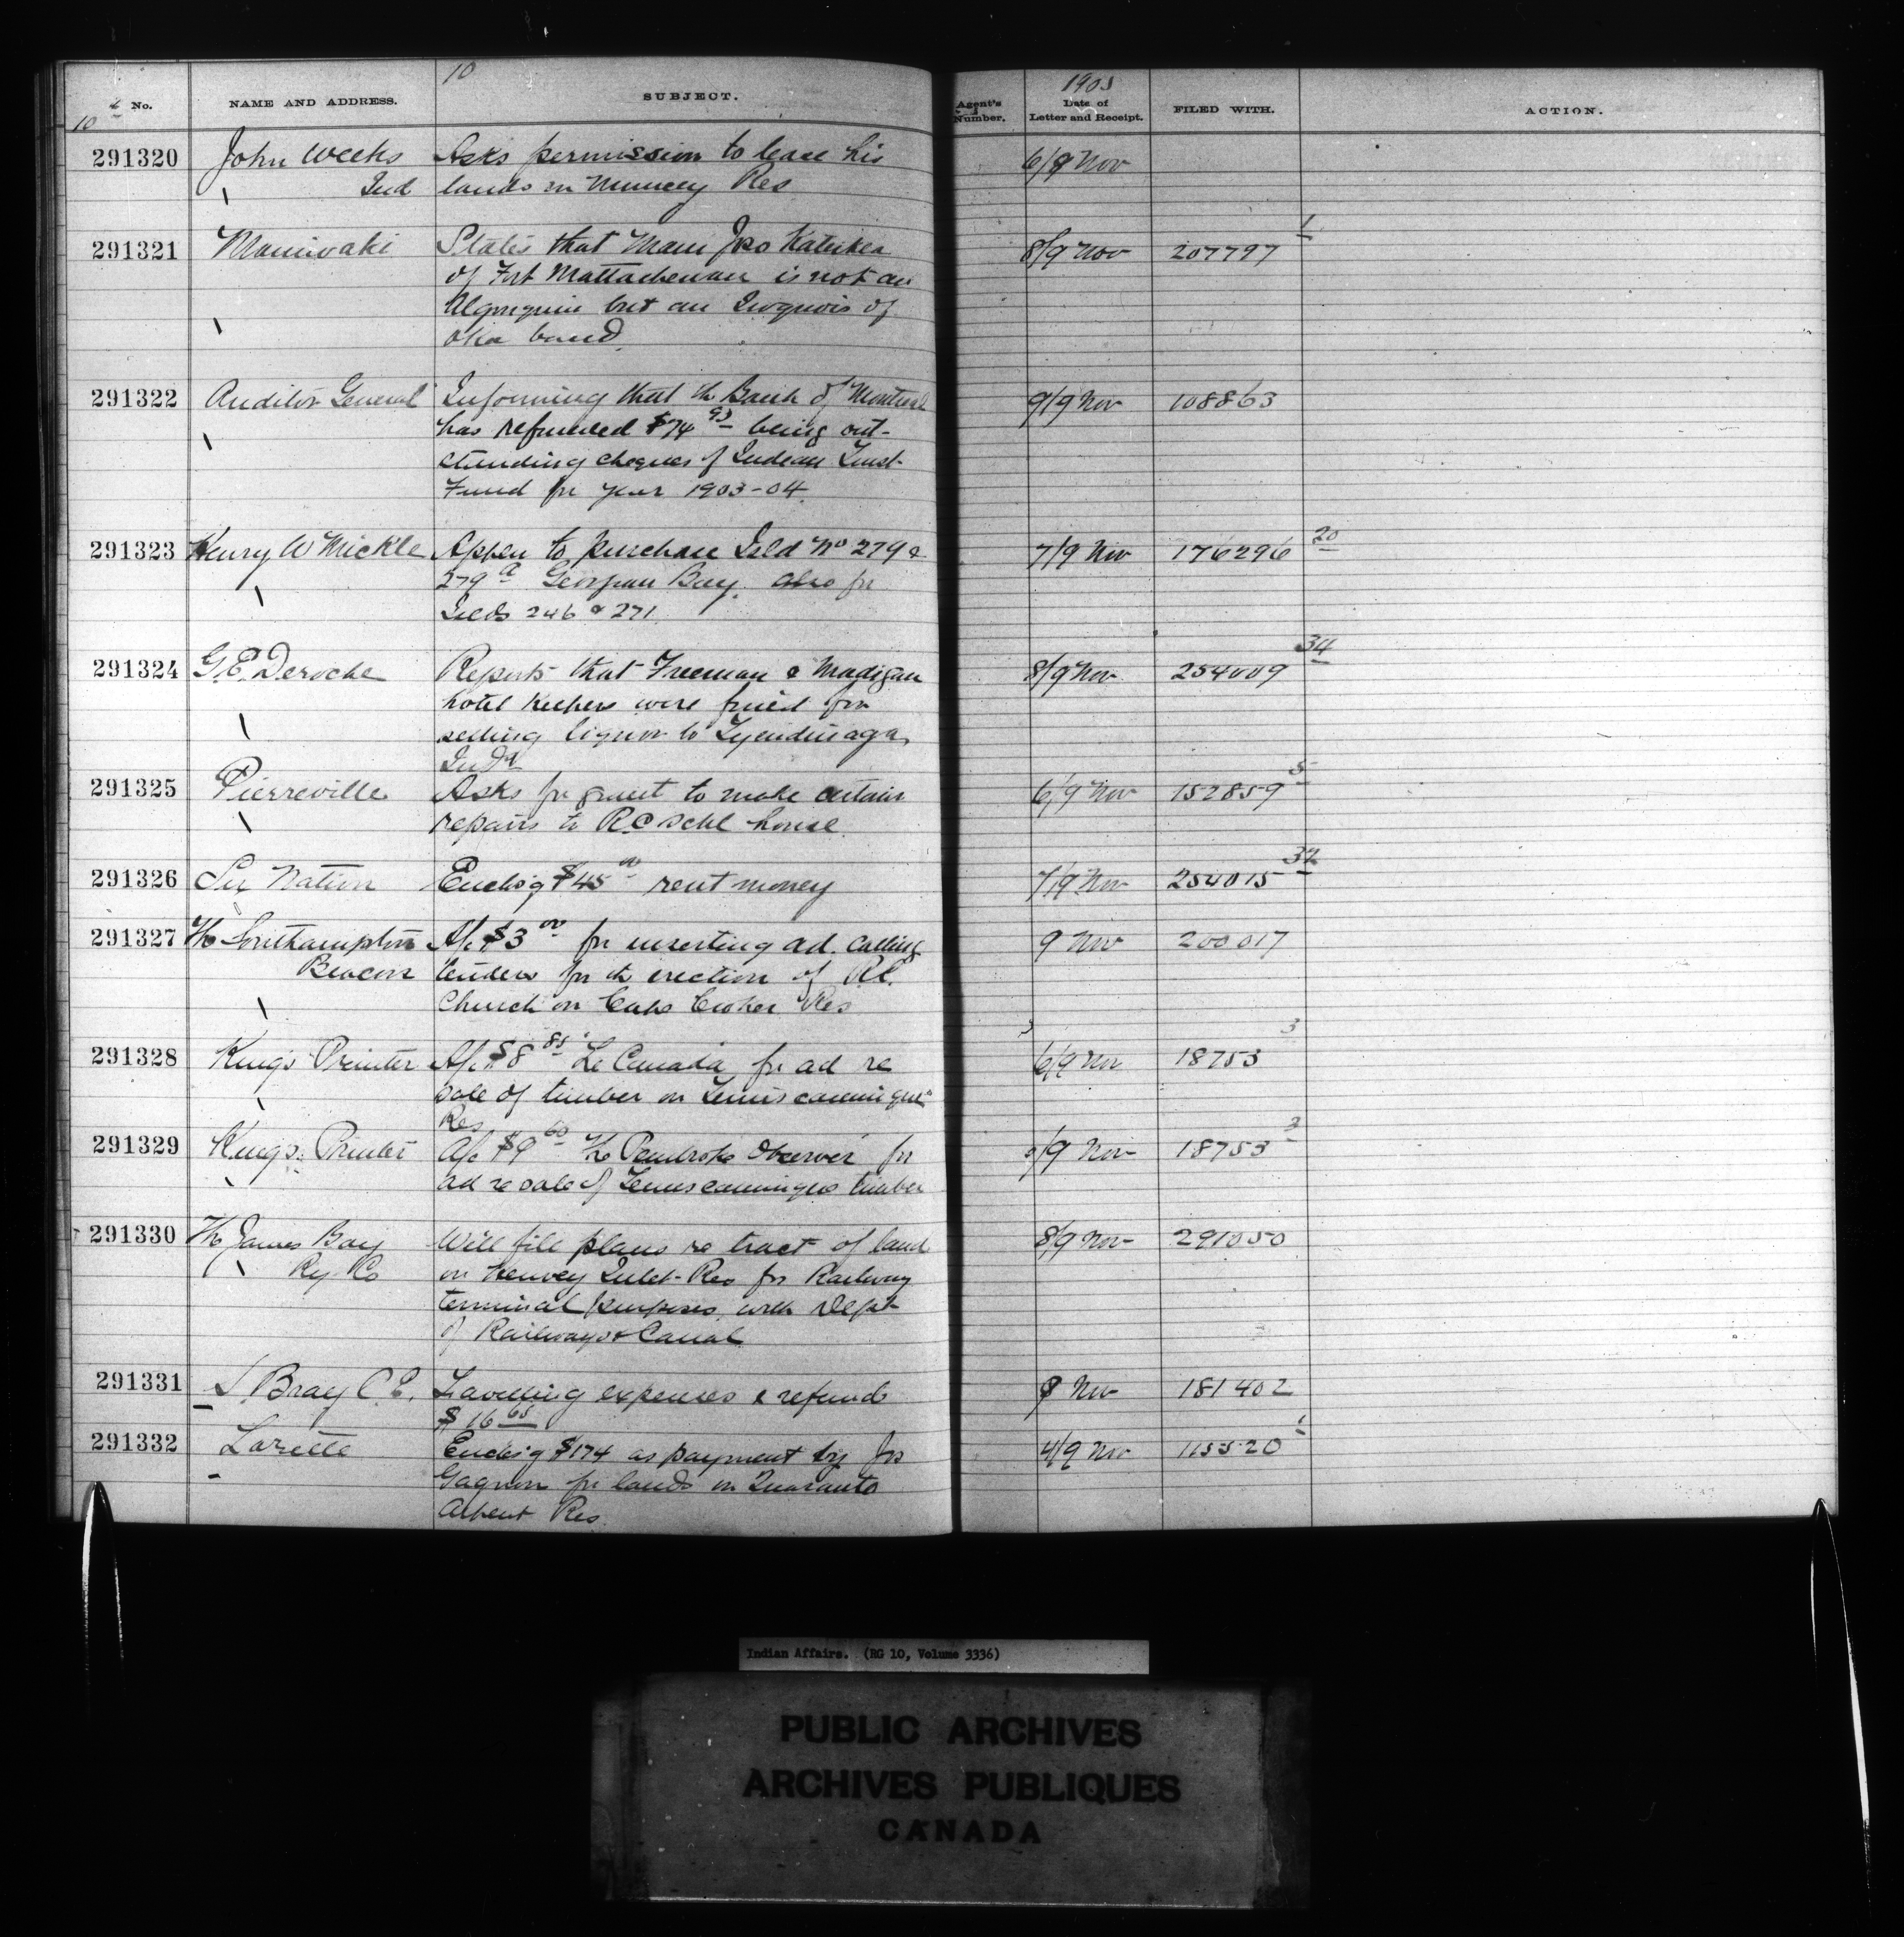 10
1905
10
No. NAME AND ADDRESS. SUBJECT. Agent's Number. Date of Letter and Receipt. FILED WITH. ACTION.
291320 John Weeks Asks permission to lease his 6/9 Nov
Ind lands in Muncey Res
291321 Maniwaki States that Mani Jos 8/9 Nov 207797 1
of Fort Mattachewan is not an
Algonquin but an Iroquois of
Oka band
291322 Auditor General Informing that the Bank of Montreal 9/9 Nov 108863
has refunded $74 93 being out-
standing cheques of Indian Trust
Fund for year 1903-04
291323 Henry W Mickle Appln to purchase Isld No 279 & 7/9 Nov 176296 20
279 a Georgian Bay. also for
Islds 246 & 271
291324 G.E. Deroche Reports that Freeman & Madigan 8/9 Nov 254009 34
hotel keepers were fined for
selling liquor to Tyendinaga
Inds
291325 Pierreville Asks for grant to make certain 6/9 Nov 152859 5
repairs to R.C. Schl house
291326 Six Nation Enclosg $45 00 rent money 7/9 Nov 254015 32
291327 The Southampton A/c $3 00 for inserting ad. calling 9 Nov 200017
Beacon tenders for the erection of R.C.
Church on Cape Croker Res
291328 King's Printer A/c $8 85 Le Canada for ad re 6/9 Nov 18753 3
sale of timber on Temiscamingue
Res
291329 Kings Printer A/c $9 60 The Pembroke Observer for /9 Nov 18753 3
ad re sale of Temiscamingue timber
291330 The James Bay Will file plans re tract of land 8/9 Nov 291050
Ry. Co on Henvey Inlet Res for Railway
terminal purposes with Dept
of Railways & Canal
291331 S. Bray C.E. Travelling expenses & refund 9 Nov 181402
$16 65
291332 Lorette Enclosg $174 as payment by Jos 4/9 Nov 115520 1
Gagnon for lands on Quarante
Arpent Res
Indian Affairs. (RG 10, Volume 3336)
PUBLIC ARCHIVES
ARCHIVES PUBLIQUES
CANADA